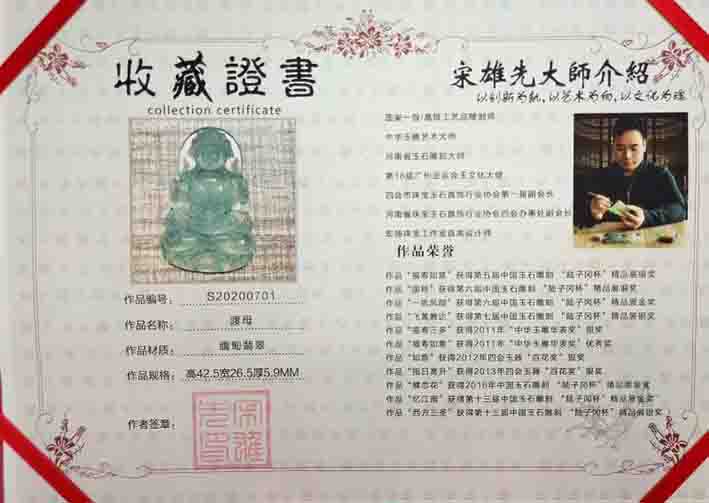 收藏證書
collection certificate
作品编号: S20200701
作品名称: 渡母
作品材质: 缅甸翡翠
作品规格: 高42.5宽26.5厚5.9MM
作者签章:
宋雄先印
宋雄先大師介紹
以创新为魂,以艺术为向,以文化为
国家一级/高级工艺品雕刻师
中华玉雕艺术大师
河南省玉石雕刻大师
第16届广州亚运会玉文化大使
四会市珠宝玉石首饰行业协会第一届副会长
河南省珠宝玉石首饰行业协会四会办事处副会长
珠宝工作室首席设计师
作品荣誉
作品“福寿如意”获得第五届中国玉石雕刻 “陆子冈杯”精品展银奖
作品“ ”获得第六届中国玉石雕刻 “陆子冈杯”精品展铜奖
作品“一帆风顺”获得第六届中国玉石雕刻 “陆子冈杯”精品展金奖
作品“飞黄腾达”获得第七届中国玉石雕刻 “陆子冈杯”精品展铜奖
作品“福寿三多”获得2011年“中华玉雕华表奖”银奖
作品“福寿如意”获得2011年“中华玉雕华表奖”优秀奖
作品“如意”获得2012年四会玉雕 “百花奖”银奖
作品“指日高升”获得2013年四会玉雕“百花奖”银奖
作品“蝶恋花”获得2016年中国玉石雕刻 “陆子冈杯”精品展金奖
作品“忆江南”获得第十三届中国玉石雕刻 “陆子冈杯”精品展金奖
作品“西方三圣”获得第十三届中国玉石雕刻 “陆子冈杯”精品展银奖